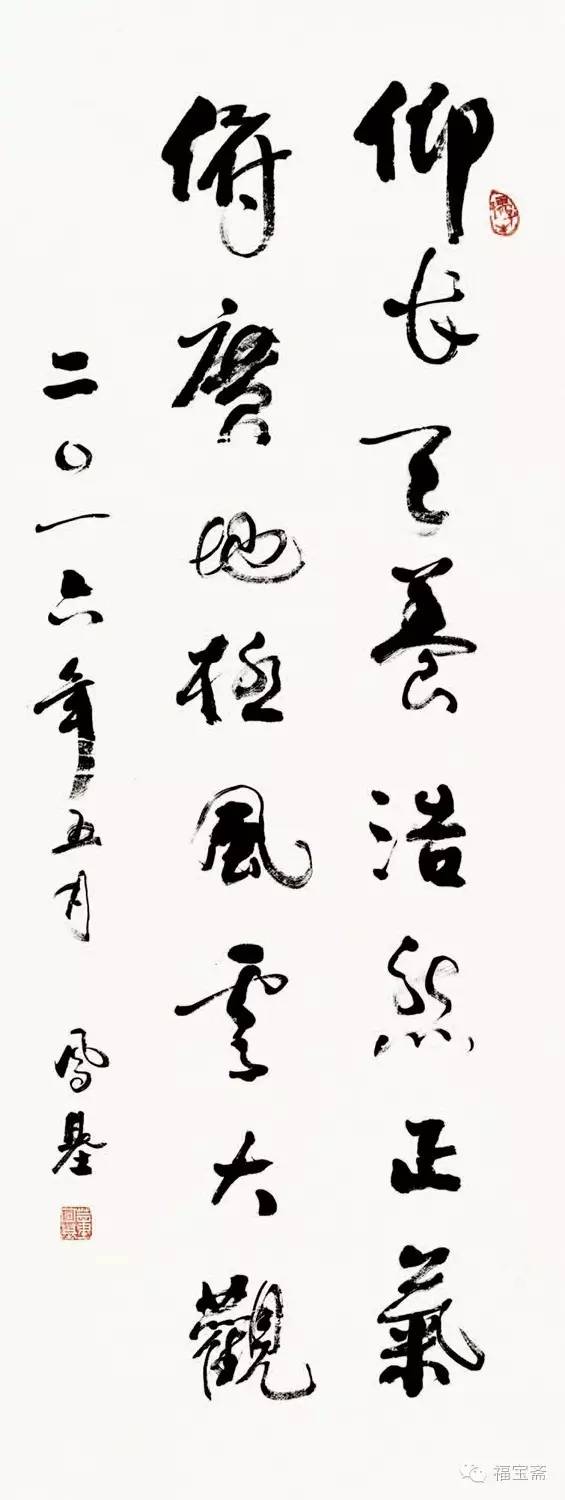 仰长天養浩然正氣
俯廣地極風雲大觀
二〇一六年五月 鳳基
福宝斋